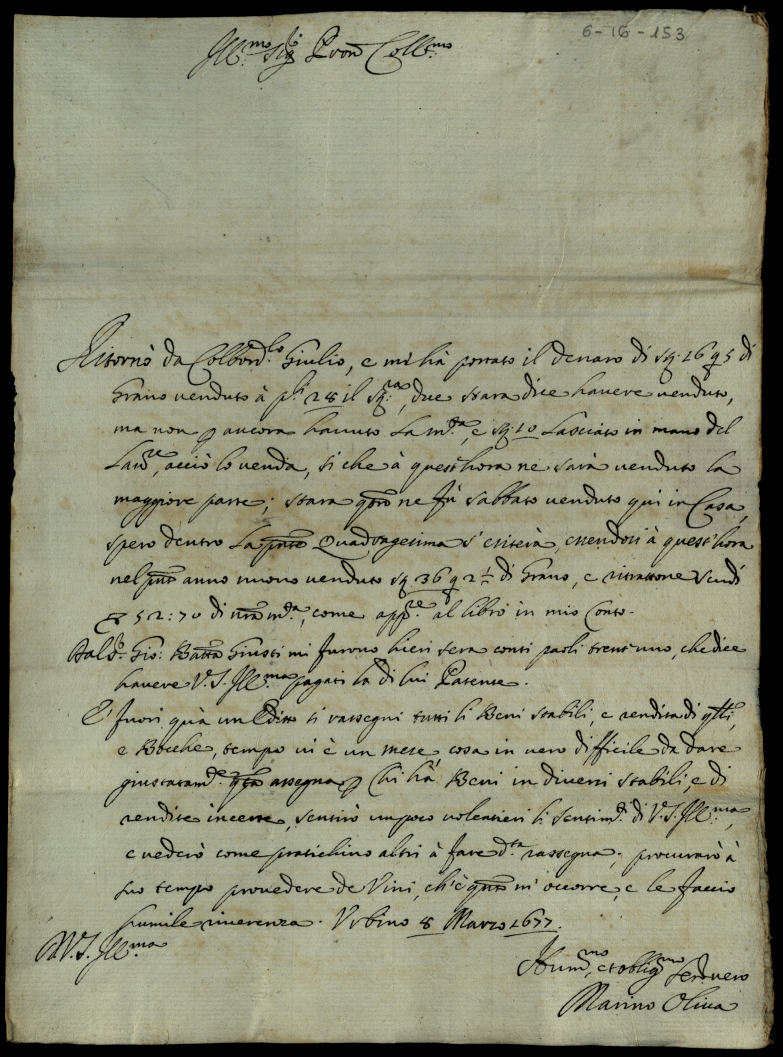 6-16-153
Ill.mo Sig.r Pron Coll.mo
Ritornò da Colbord.lo Giulio, e mi hà portato il denaro di sq: 16 q 5 di
Grano venduto à pli 28 il sq:, due stara dice havere venduto,
ma non p ancora havuto la m.ta, e sq: 10 lasciato in mano del
Lav.re, acciò lo venda, si che à quest'hora ne sarà venduto la
maggiore parte; stara qttro ne fù sabbato venduto quì in Casa,
spero dentro la pnte Quadragesima s'esiterà, essendosi à quest'hora
nel pnte anno nuovo venduto sq 36 q 2½ di Grano, e rittrattone Scudi
52:70 di nra m.ta, come app.re al libro in mio Conto.
Dal S.r Gio: Batta Giusti mi furono hieri sera conti paoli trent'uno, che dice
havere V.S. Ill.ma pagati la di lui Patente.
È fuori quà un Editto si rassegni tutti li Beni stabili, e rendita di qlli,
e Bocche, tempo vi è un mese cosa in vero difficile da dare
giustatam.te qta assegna p chi hà Beni in diversi stabili, e di
rendite incerte, sentirò un poco volentieri li sentim.ti di V.S. Ill.ma,
e vederò come pratichino altri à fare d.ta rassegna; procurarò à
suo tempo provedere de Vini, ch'è qnto m'occorre, e le faccio
humile riverenza. Urbino 8 Marzo 1677.
D.V.S. Ill.ma
Hum.mo, et oblig.mo Ser.re vero
Marino Oliva